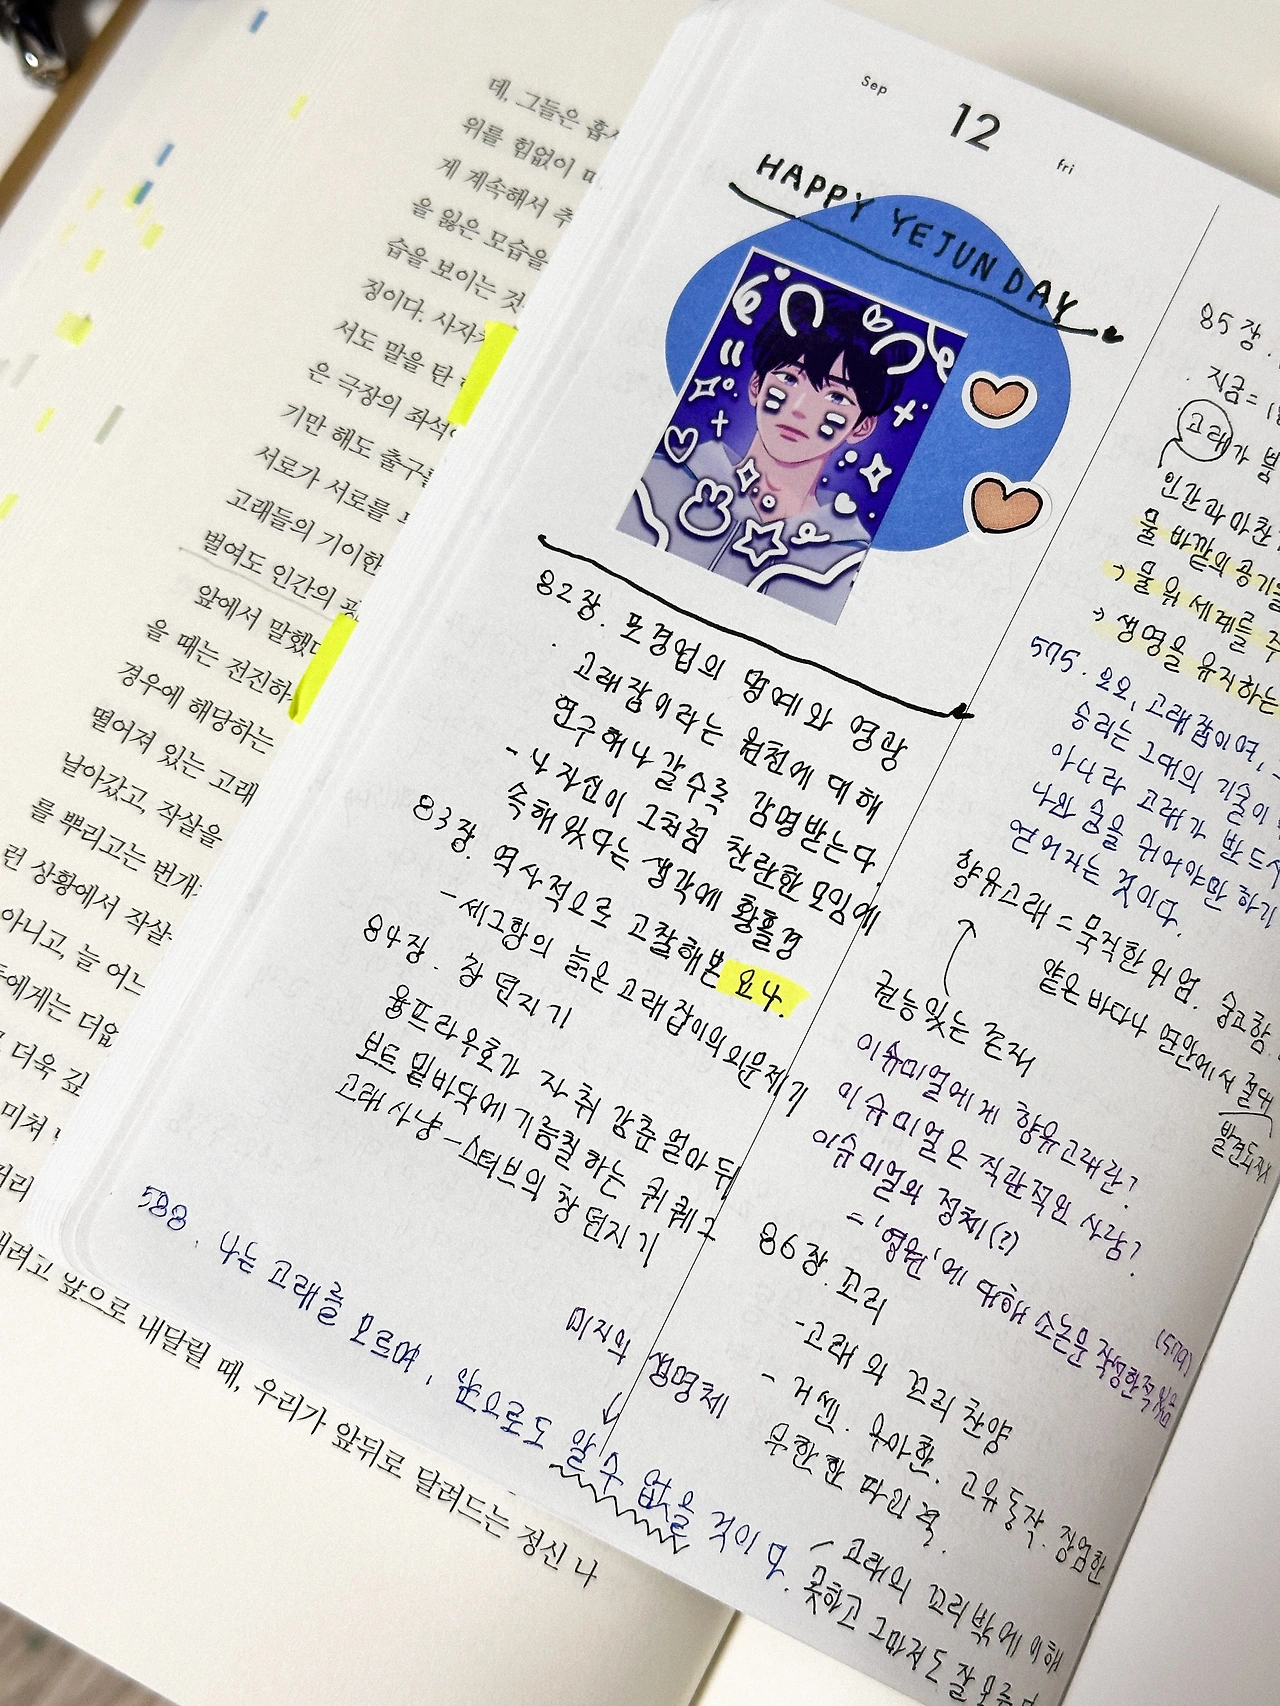 데, 그들은 흡
위를 힘없이
게 계속해서 추
을 잃은 모습을
습을 보이는 것
징이다. 사자
서도 말을 탄
은 극장의 좌석
기만 해도 출구를
서로가 서로를
고래들의 기이한
벌여도 인간의 광
앞에서 말했다
을 때는 전진하
경우에 해당하는
떨어져 있는 고래
날아갔고, 작살을
를 뿌리고는 번개
런 상황에서 작살
아니고, 늘 어느
에게는 더욱
더욱 깊
미쳐
내려고 앞으로 내달릴 때, 우리가 앞뒤로 달려드는 정신 나
Sep
12
fri
HAPPY YEJUN DAY
82장. 포경업의 명예와 영광
고래잡이라는 원천에 대해
연구해나갈수록 감명받는다.
- 나 자신이 그처럼 찬란한 모임에
속해 있다는 생각에 황홀경
83장. 역사적으로 고찰해본 요나.
- 세그항의 늙은 고래잡이의 의문제기
84장. 창 던지기
융프라우호가 자취 감춘 얼마 뒤
보트 밑바닥에 기름칠하는 퀴퀘그
고래사냥 - 스터브의 창 던지기
588. 나는 고래를 모르며, 앞으로도 알 수 없을 것이다.
미지의 생명체
85장.
지금=
고래가 뿜
인간과 마찬
물 바깥의 공기를
→ 물 위 세계를 주
→ 생명을 유지하는
575. 오오, 고래잡이여,
승리는 그대의 기술이
아니라 고래가 반드시
나와 숨을 쉬어야만 하기
얻어지는 것이다.
향유고래 = 묵직한 위엄. 숭고함.
얕은 바다나 연안에서 절대
발견되지
권능있는 존재
이슈미얼에게 향유고래란?
이슈미얼은 직관적인 사람?
이슈미얼의 정체(?)
= '영원'에 대해 소논문 작성한적 있음
(579)
86장. 꼬리
- 고래의 꼬리 찬양
- 거센. 우아한. 고유동작. 장엄한
무한한 파괴력.
고래의 꼬리밖에 이해
못하고 그마저도 잘 모른다